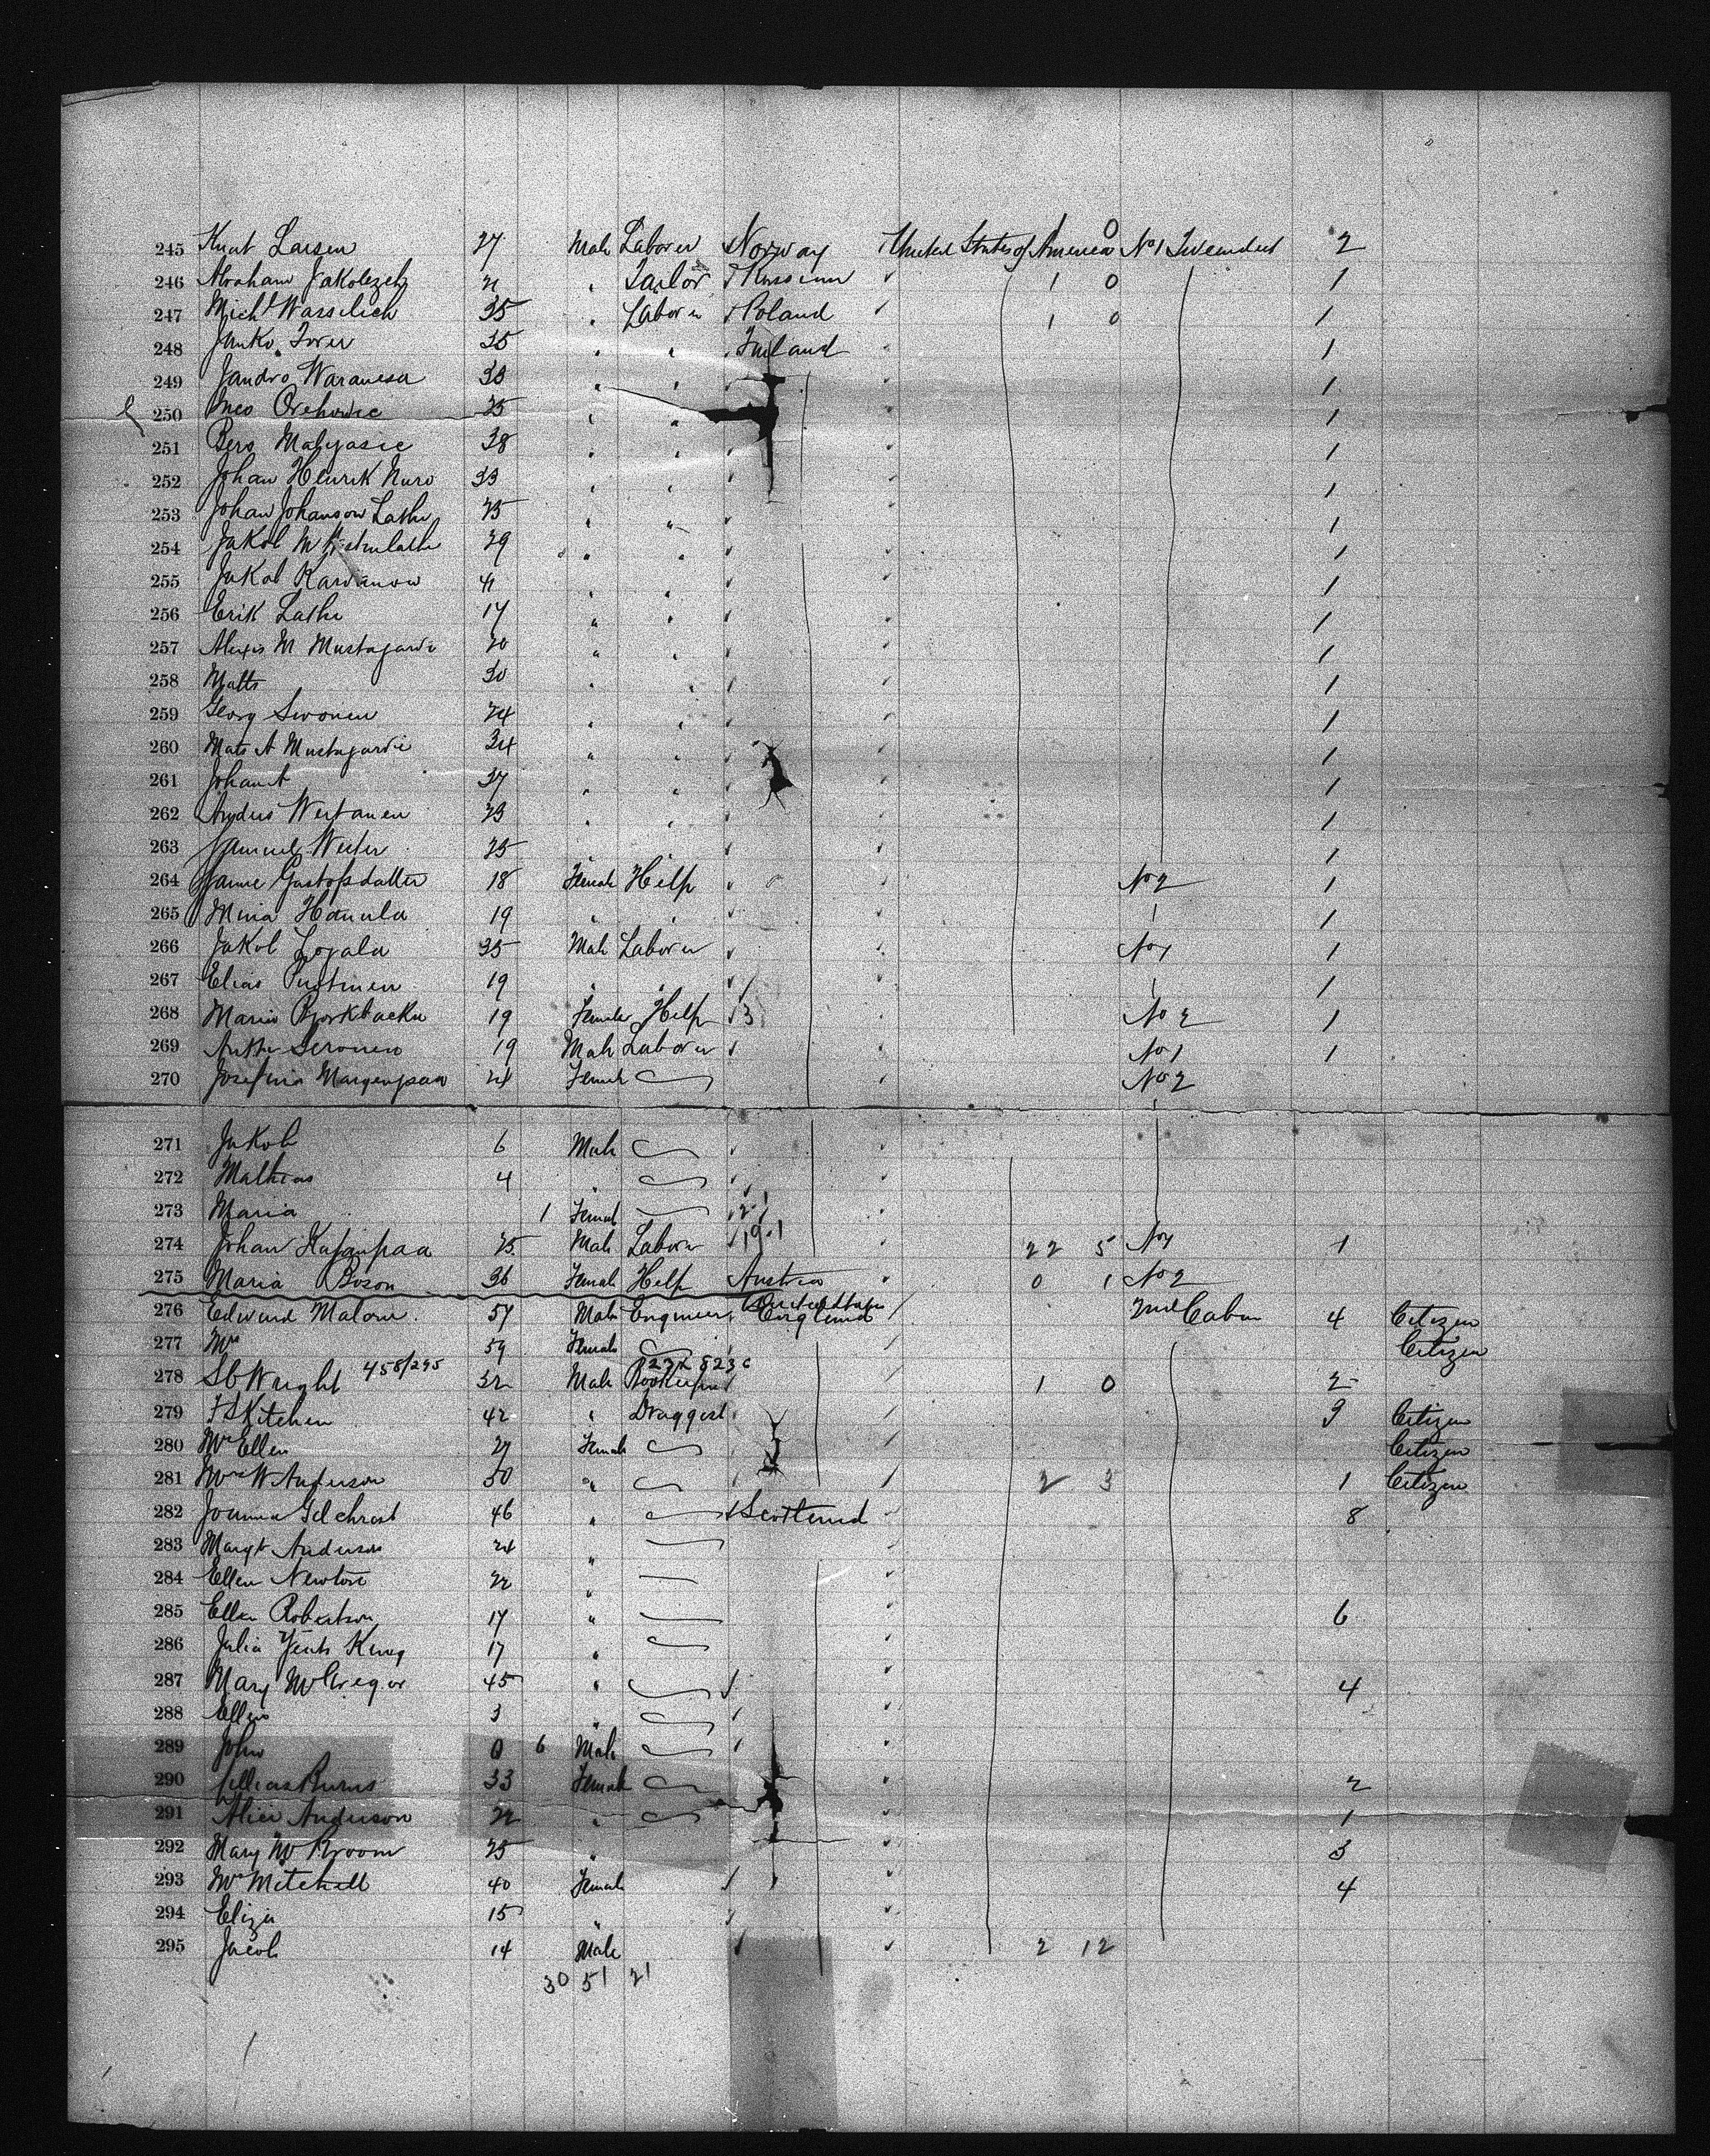 245 Knut Larsen 27 Male Laborer Norway United States of America 1 0 No 1 Tweendeck 2
246 Abraham Jakolezek 21 " Tailor Russian 1 0 1
247 Michl Wasslich 35 " Laborer Poland 1 0 1
248 Janko 35 " " Finland 1
249 Jandro Waranesa 38 " " 1
250 Orehovic 25 " " 1
251 Pero Malyasic 38 " " 1
252 Johan Henrik Nuro 33 " " 1
253 Johan Johanson Lathe 25 " " 1
254 Jakob M 29 " " 1
255 Jakob 41 " " 1
256 Erik Lathe 17 " " 1
257 Alexis M Mustajarvi 20 " " 1
258 Matts 30 " " 1
259 Georg Sivonen 24 " " 1
260 Mats A Mustajarvi 34 " " 1
261 Johan A 37 " " 1
262 Anders Wertanen 23 " " 1
263 Samuel Wester 25 1
264 Gustafsdatter 18 Female Help No 2 1
265 Mina Hannula 19 " " 1
266 Jakob 35 Male Laborer No 1 1
267 Elias 19 " " 1
268 Maria Bjorkbacka 19 Female Help 3 No 2 1
269 Antti 19 Male Laborer No 1 1
270 Josefina 24 Female No 2
271 Jakob 6 Male
272 Mathias 4 "
273 Maria 1 Female 2-1
274 Johan 25 Male Laborer 19-1 22 5 No 1 1
275 Maria Bozon 36 Female Help Austria 0 1 No 2
276 Edward Malone 57 Male Engineer United States England 2nd Cabin 4 Citizen
277 Mrs 59 Female Citizen
278 Wright 458/295 32 Male Bookkeeper 1 0 2
279 F S Kitchen 42 " Druggist 3 Citizen
280 Mrs Ellen 27 Female Citizen
281 Mrs W Anderson 50 " 2 3 1 Citizen
282 Joanna Gilchrist 46 " Scotland 8
283 Margt Anderson 24 "
284 Ellen Newton 22 "
285 Ellen Robertson 17 " 6
286 Julia King 17 "
287 Mary McGregor 45 " 4
288 Ellen 3 "
289 John 0 6 Male
290 Burns 33 Female 2
291 Alice Anderson 22 " 1
292 Mary 25 " 3
293 Mrs Mitchell 40 Female 4
294 Eliza 15 "
295 Jacob 14 Male 2 12
30 51 21